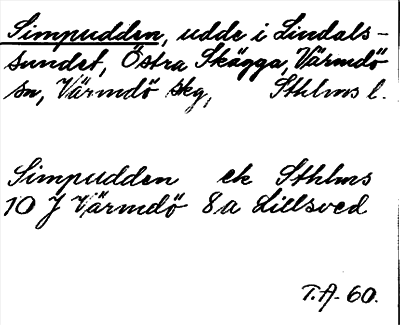 Simpudden, udde i Lindals-
sundet, Östra Skägga, Värmdö
sn, Värmdö skg, Sthlms l.
Simpudden ek Sthlms
10 J Värmdö 8a Lillsved
T.A. 60.